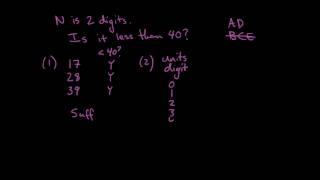 N is 2 digits.
Is it less than 40?
AD
BCE
< 40?
(1) 17 Y
28 Y
39 Y
Suff
(2) units
digit
0
1
2
3